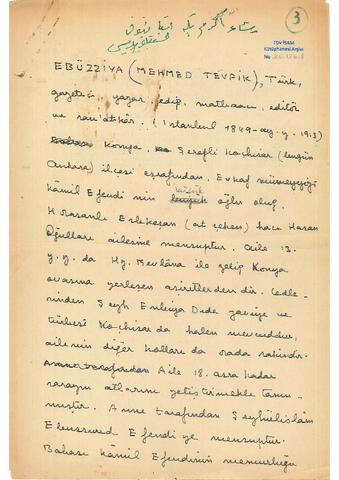 3
TDV İSAM
Kütüphanesi Arşivi
No
EBÜZZİYA (MEHMED TEVFİK), Türk,
gazeteci, yazar, edip, matbaacı, editör
ve san'atkâr. (İstanbul 1849-ay. y. 1913)
Konya, Şerefli Koçhisar (bugün
Ankara) ilçesi eşrafından, Evkaf mümeyyizi
Kâmil Efendi'nin küçük oğlu olup,
Horasanlı Eslekeşan (at çeken) hacı Hasan
Oğulları ailesine mensuptur. Aile 13.
y.y. da Hz. Mevlâna ile gelip Konya
ovasına yerleşen aşiretlerdendir. Cedle-
rinden Şeyh Enbiya Dede zaviye ve
türbesi Koçhisar'da halen mevcuddur,
ailenin diğer kolları da orada sakindir.
Aile 18. asra kadar
sarayın atlarını yetiştirmekle tanın-
mıştır. Anne tarafından Şeyhülislâm
Ebussuud Efendi'ye mensuptur.
Babası Kâmil Efendinin memurluğu